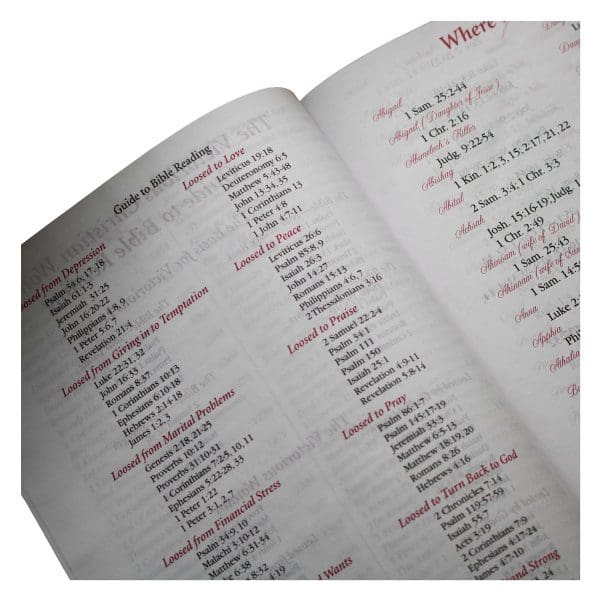 Guide to Bible Reading
Loosed from Depression
Psalm 34:6,17-18
Isaiah 61:1-3
Jeremiah 31:25
John 16:20-22
Philippians 4:8,9
1 Peter 5:6,7
Revelation 21:4
Loosed from Giving in to Temptation
Luke 22:31,32
John 16:33
Romans 8:37
1 Corinthians 10:13
Ephesians 6:10-18
Hebrews 2:14-18
James 1:2,3
Loosed from Marital Problems
Genesis 2:18,21-25
Proverbs 10:12
Proverbs 31:10-31
1 Corinthians 7:2-5,10,11
Ephesians 5:22-28,33
1 Peter 1:22
1 Peter 3:1,2,7
Loosed from Financial Stress
Psalm 34:9,10
Malachi 3:10-12
Matthew 6:31-34
Luke 6:38
Wants
Loosed to Love
Leviticus 19:18
Deuteronomy 6:5
Matthew 5:43-48
John 13:34,35
1 Corinthians 13
1 Peter 4:8
1 John 4:7-11
Loosed to Peace
Leviticus 26:6
Psalm 85:8,9
Isaiah 26:3
John 14:27
Romans 15:13
Philippians 4:6,7
2 Thessalonians 3:16
Loosed to Praise
2 Samuel 22:24
Psalm 34:1
Psalm 111
Psalm 150
Isaiah 25:1
Revelation 4:9-11
Revelation 5:8-14
Loosed to Pray
Psalm 86:1-7
Psalm 145:17-19
Jeremiah 33:3
Matthew 6:5-13
Matthew 18:19,20
Romans 8:26
Hebrews 4:16
Loosed to Turn Back to God
2 Chronicles 7:14
Psalm 119:57-59
Isaiah 55:7
Acts 3:19
2 Corinthians 7:9
Ephesians 4:17-24
James 4:7-10
and Strong
24
Where
Abigail
1 Sam. 25:2-44
Abigail (Daughter of Jesse)
1 Chr. 2:16
Abimelech's Killer
Judg. 9:22-54
Abishag
1 Kin. 1:2,3, 15; 2:17,21,22
Abital
2 Sam. 3:4;1 Chr. 3:3
Achsah
Josh. 15:16-19; Judg. 1
1 Chr. 2:49
Ahinoam (wife of David)
1 Sam. 25:43
Ahinoam (wife of
1 Sam. 14:50
Anna
Luke 2:
Apphia
Athaliah